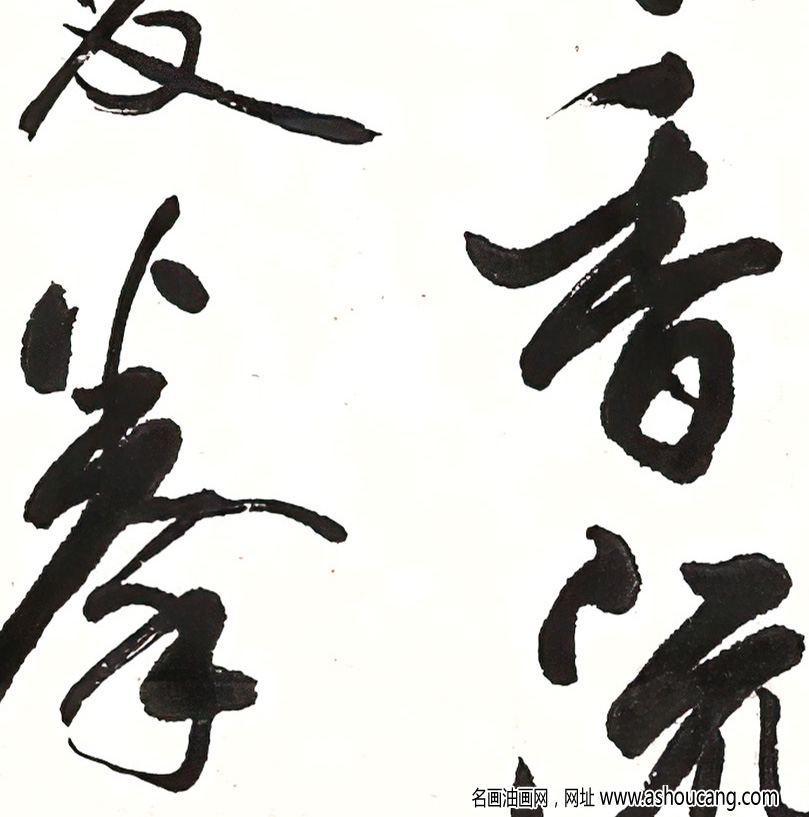 香流
拳
名画油画网，网址 www.ashoucang.com